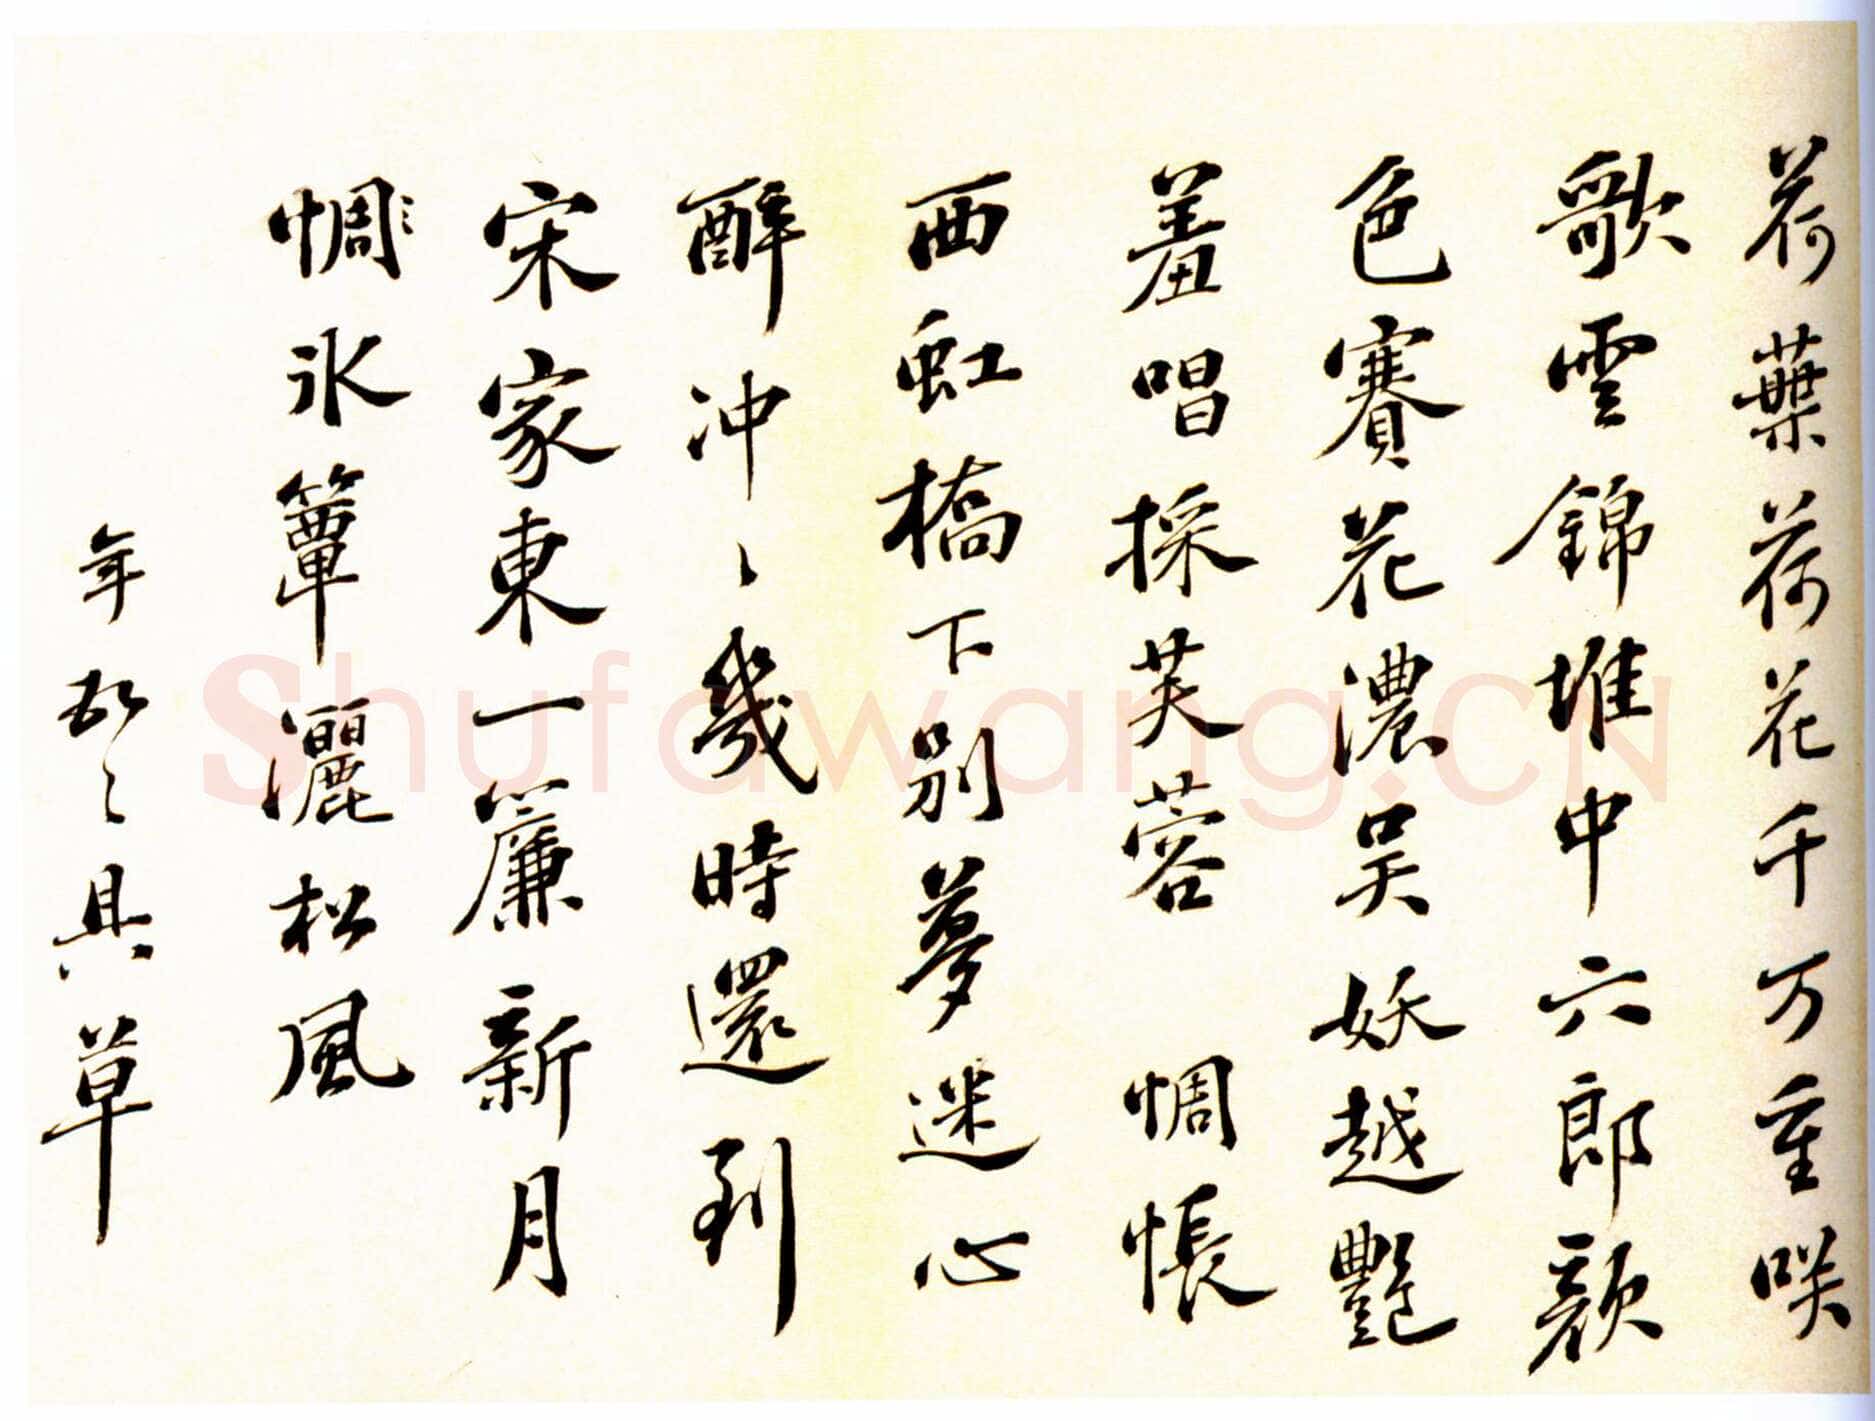 荷葉荷花千万重咲
歌雲錦堆中六郎顔
色賽花濃吴妖越艷
羞唱採芙蓉 惆悵
西虹橋下别夢迷心
醉冲〻幾時還到
宋家東一簾新月
惆氷簟灑松風
年具草
Shufawang.CN